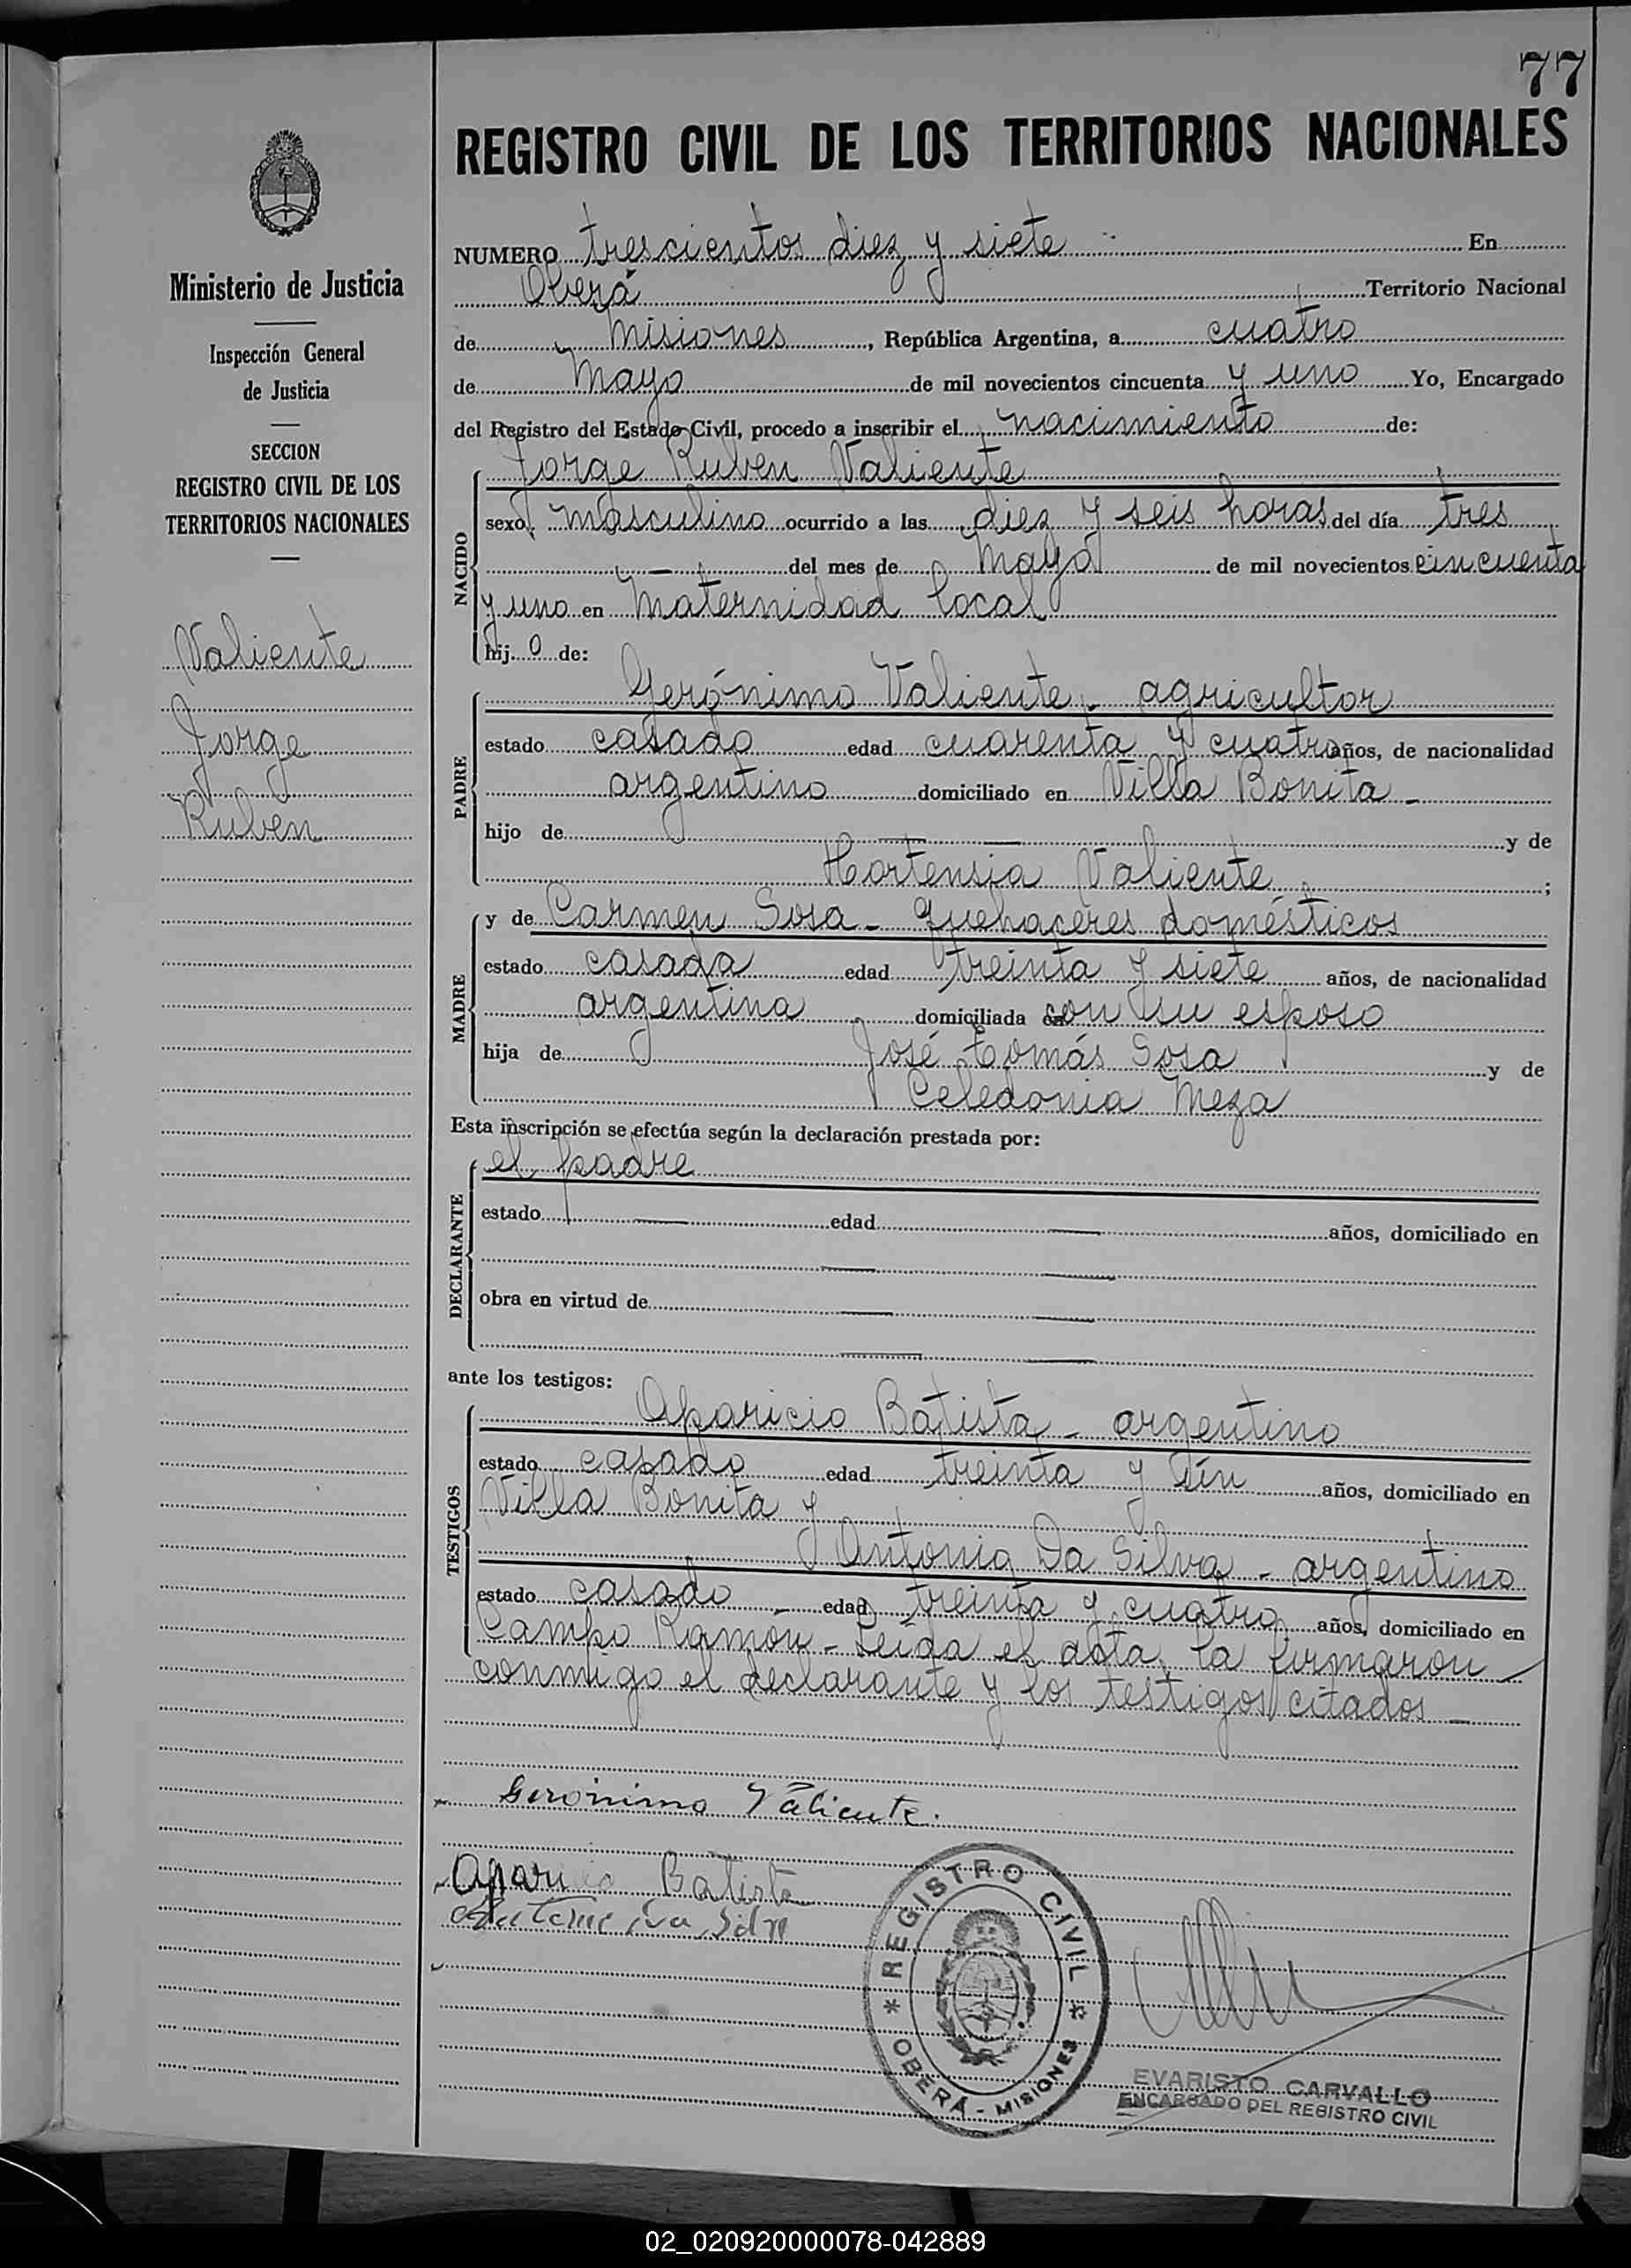 77
REGISTRO CIVIL DE LOS TERRITORIOS NACIONALES
Ministerio de Justicia
Inspección General
de Justicia
SECCION
REGISTRO CIVIL DE LOS
TERRITORIOS NACIONALES
Valiente
Jorge
Ruben
NUMERO trescientos diez y siete En
Oberá Territorio Nacional
de Misiones, República Argentina, a cuatro
de Mayo de mil novecientos cincuenta y uno Yo, Encargado
del Registro del Estado Civil, procedo a inscribir el nacimiento de:
Jorge Ruben Valiente
NACIDO
sexo masculino ocurrido a las diez y seis horas del día tres
— del mes de Mayo de mil novecientos cincuenta
y uno en Maternidad local
hijo de:
PADRE
Gerónimo Valiente - agricultor
estado casado edad cuarenta y cuatro años, de nacionalidad
argentino domiciliado en Villa Bonita -
hijo de — y de
Hortensia Valiente ;
MADRE
y de Carmen Sosa - Quehaceres domésticos
estado casada edad treinta y siete años, de nacionalidad
argentina domiciliada con su esposo
hija de José Tomás Sosa y de
Celedonia Meza
Esta inscripción se efectúa según la declaración prestada por:
DECLARANTE
el padre
estado — edad — años, domiciliado en
— —
obra en virtud de — —
— —
ante los testigos:
TESTIGOS
Aparicio Batista - argentino
estado casado edad treinta y un años, domiciliado en
Villa Bonita y
Antonio Da Silva - argentino
estado casado - edad treinta y cuatro años, domiciliado en
Campo Ramon - Leida el acta, la firmaron
conmigo el declarante y los testigos citados -
Geronimo Valiente.
Aparicio Batista
REGISTRO CIVIL
* OBERÁ - MISIONES *
EVARISTO CARVALLO
ENCARGADO DEL REGISTRO CIVIL
02_020920000078-042889